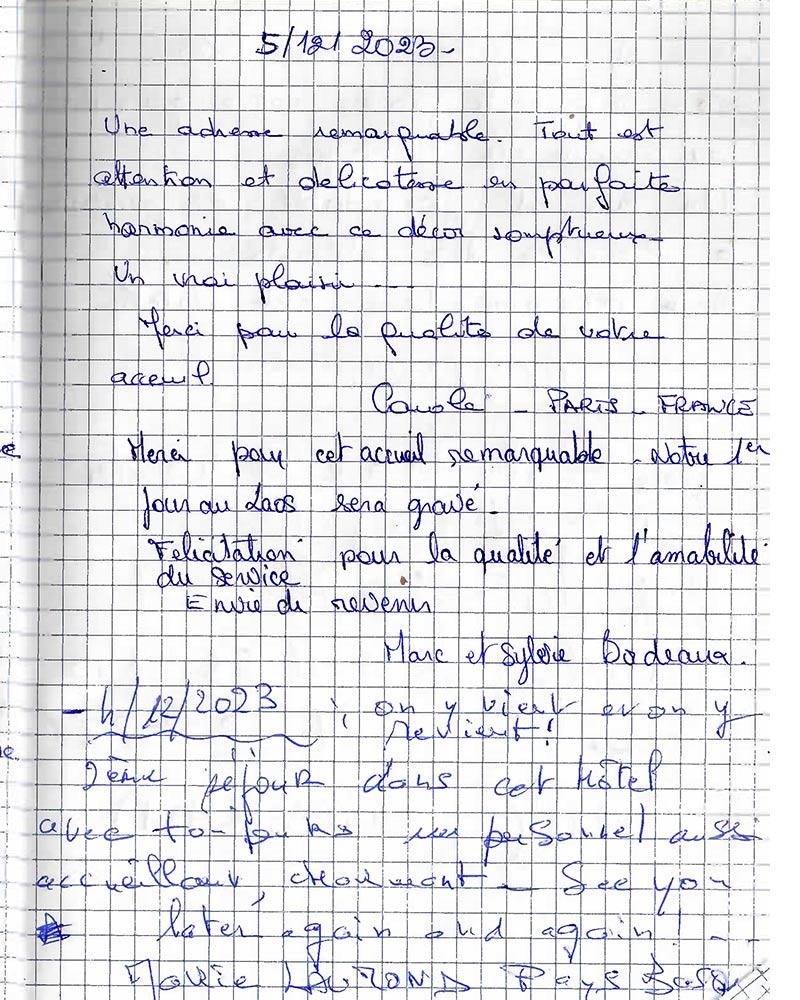 5/12/2023-
Une adresse remarquable. Tout est
attention et delicatesse en parfaite
harmonie avec ce décor somptueux-
Un vrai plaisir ---
Merci pour la qualité de votre
accueil.
Carole - PARIS - FRANCE
Merci pour cet accueil remarquable - Notre 1er
jour au Laos sera gravé.
Felicitation pour la qualité et l'amabilité
du service
Envie de revenir
Marc et Sylvie
- 4/12/2023 ; on y vient et on y
revient !
2ème séjour dans cet hôtel
avec toujours un personnel aussi
accueillant, charmant - See you
later again and again ! - -
Marie Pays Basque